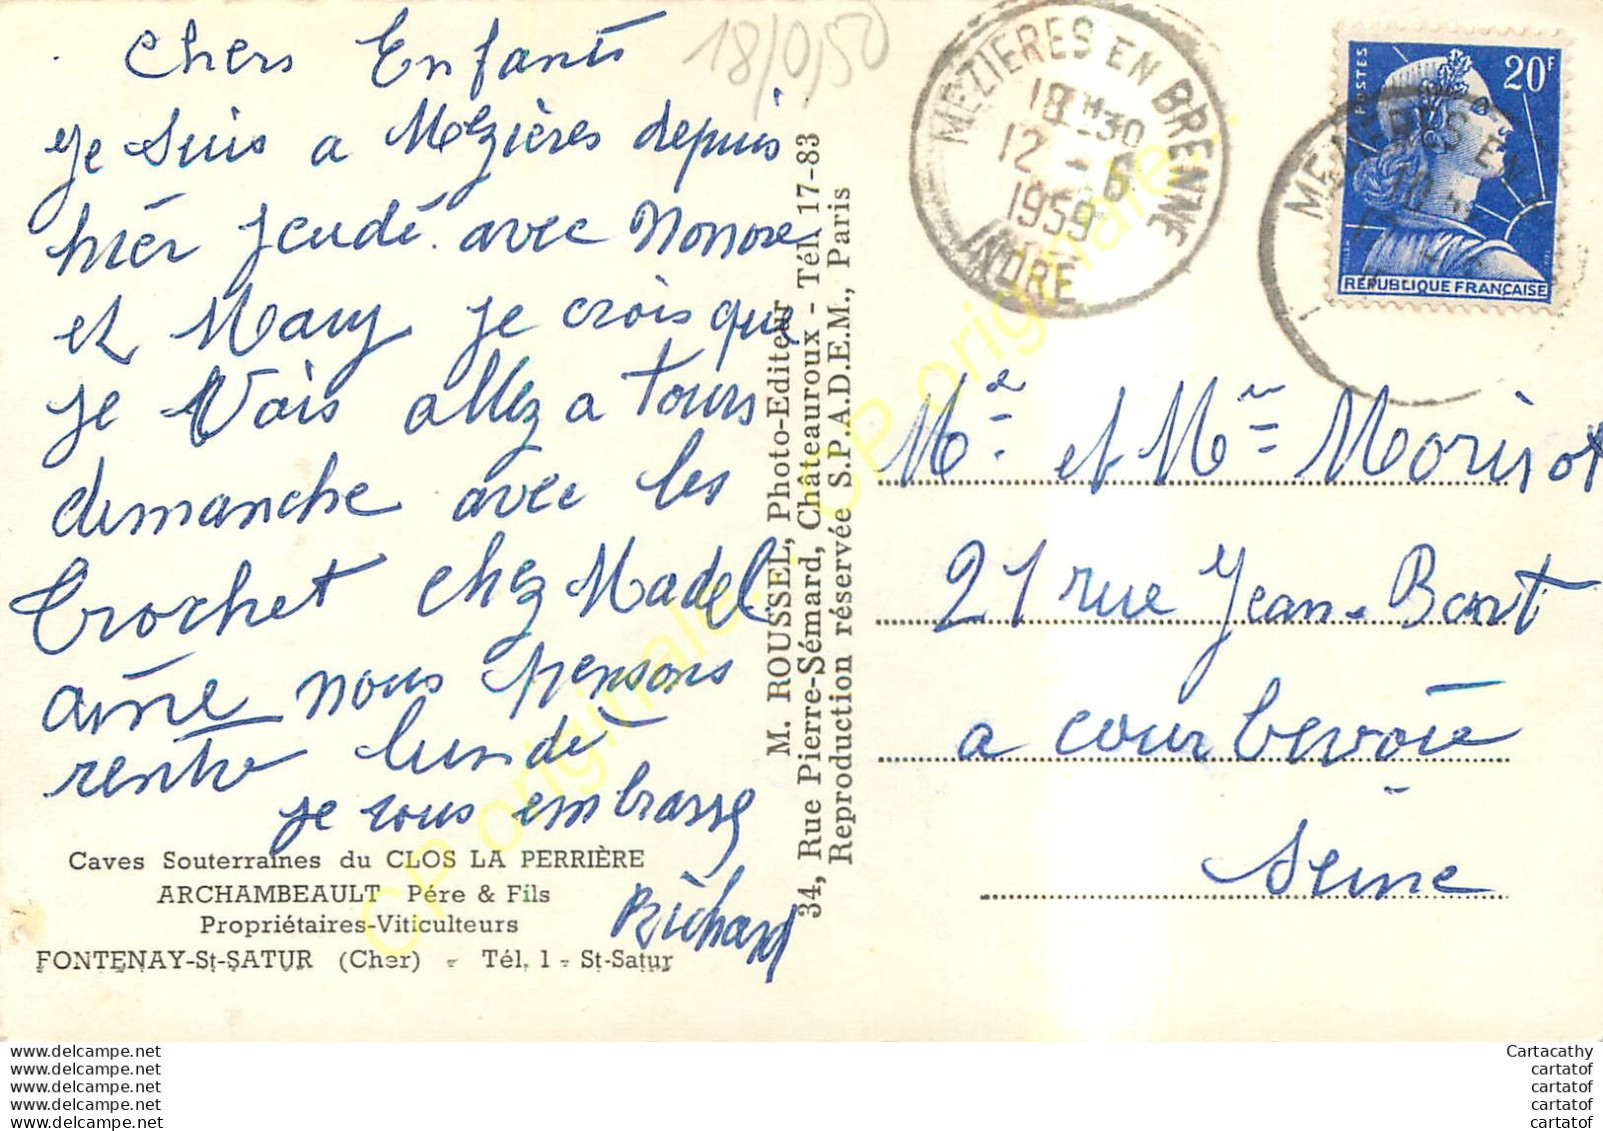 18/0,50
Chers Enfants
Je suis a Mézières depuis
hièr jeudé avec Nonore
et Mary je crois que
je Vais allez a Tours
dimanche avec les
Crochet chez Madel
aine nous pensons
rentre lundè
je vous embrasse
Richard
Caves Souterraines du CLOS LA PERRIÈRE
ARCHAMBEAULT Pére & Fils
Propriétaires-Viticulteurs
FONTENAY-St-SATUR (Cher) - Tél. 1 - St-Satur
M. ROUSSEL, Photo-Editeur
34, Rue Pierre-Sémard, Châteauroux - Tél. 17-83
Reproduction réservée S.P.A.D.E.M., Paris
MEZIERES EN BRENNE
18 H30
12 - 6
1959
INDRE
POSTES
20F
REPUBLIQUE FRANÇAISE
MEZIERES EN
Mr et Mme Morisot
21 rue Jean-Bart
a courbevoie
Seine
CP originale
CP originale
www.delcampe.net
www.delcampe.net
www.delcampe.net
www.delcampe.net
www.delcampe.net
Cartacathy
cartatof
cartatof
cartatof
cartatof